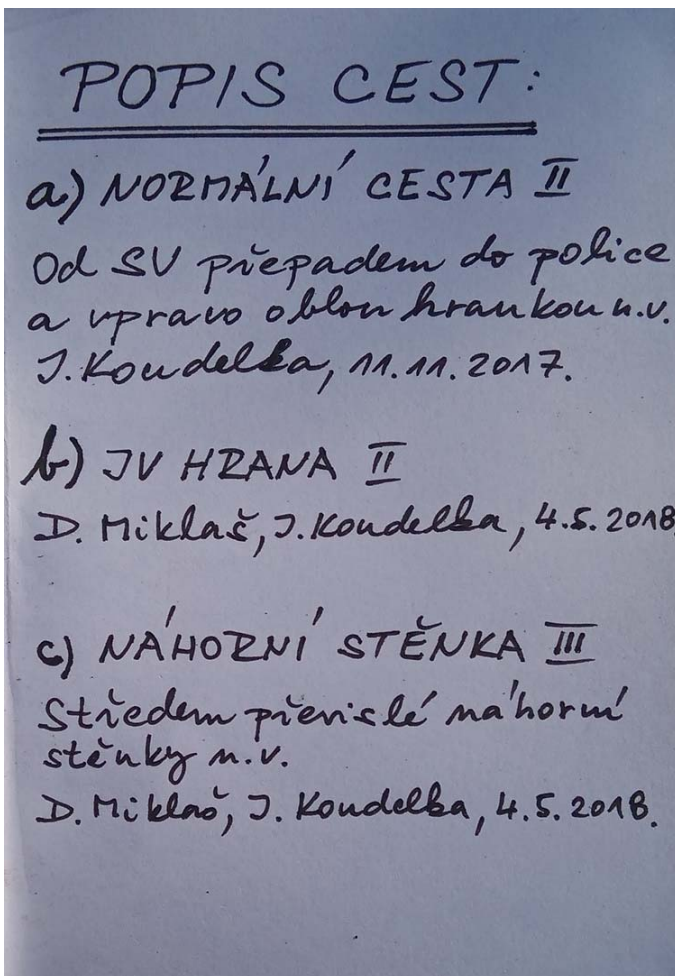 POPIS CEST:
a) NORMÁLNÍ CESTA II
Od SV přepadem do police
a vpravo oblou hrankou n.v.
J. Koudelka, 11.11.2017.
b) JV HRANA II
D. Miklaš, J. Koudelka, 4.5.2018.
c) NÁHORNÍ STĚNKA III
Středem převislé náhorní
stěnky n.v.
D. Miklaš, J. Koudelka, 4.5.2018.